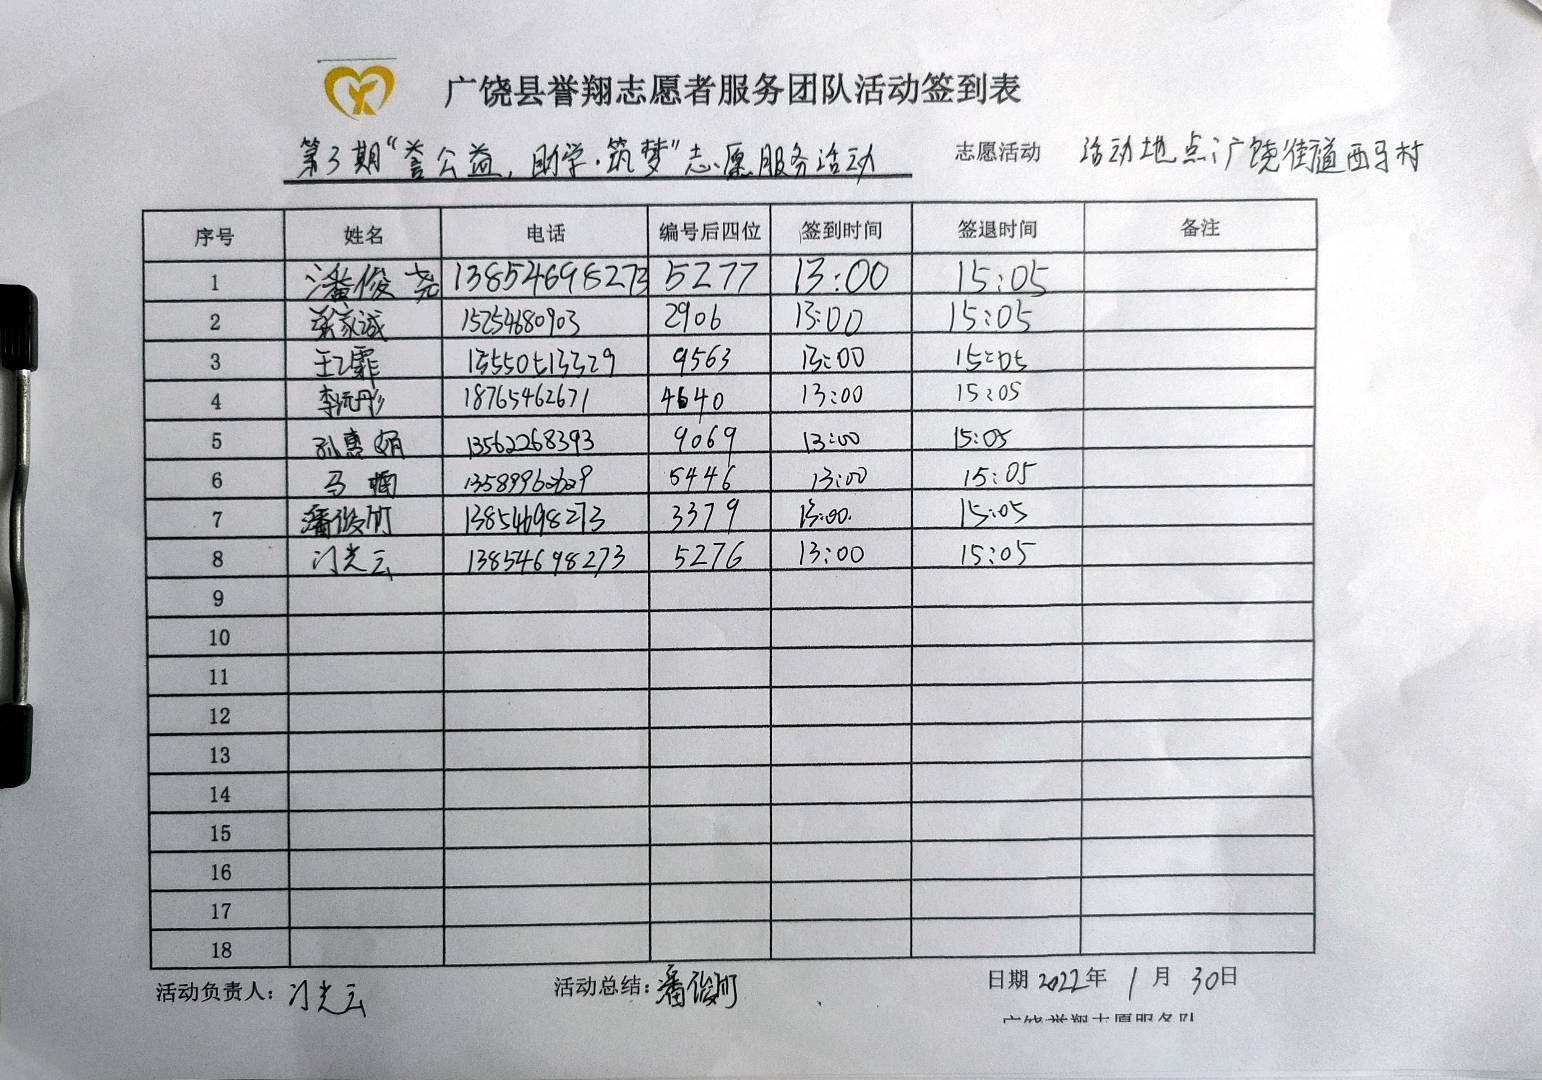 广饶县誉翔志愿者服务团队活动签到表
第3期“誉公益,助学·筑梦”志愿服务活动 志愿活动 活动地点:广饶街道西马村
序号 姓名 电话 编号后四位 签到时间 签退时间 备注
1 潘俊尧 13854698273 5277 13:00 15:05
2 家诚 15254680903 2906 13:00 15:05
3 王乙霏 13:00 9563 15:05
4 李沅彤 18765462671 4640 13:00 15:05
5 孙惠娟 13562268393 9069 13:00 15:05
6 马楠 5446 13:00 15:05
7 潘俊竹 13854698273 3379 13:00 15:05
8 光云 13854698273 5276 13:00 15:05
9
10
11
12
13
14
15
16
17
18
活动负责人: 光云 活动总结:潘俊竹 日期 2022年 1月 30日
广饶誉翔志愿服务队